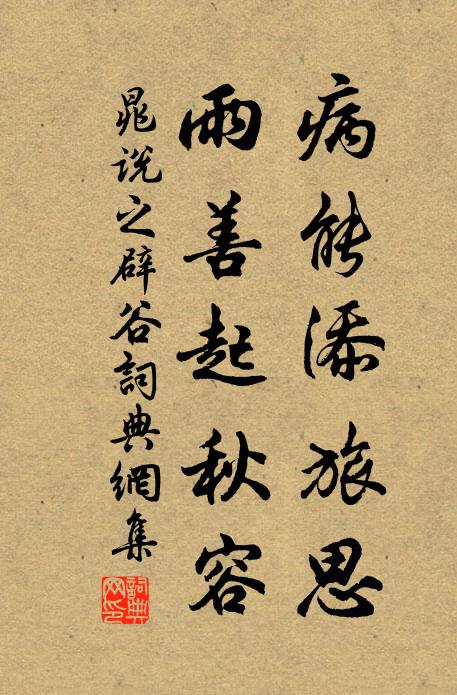 病能添旅思
雨善起秋容
晁说之辟谷詞典網集
詞典
网印